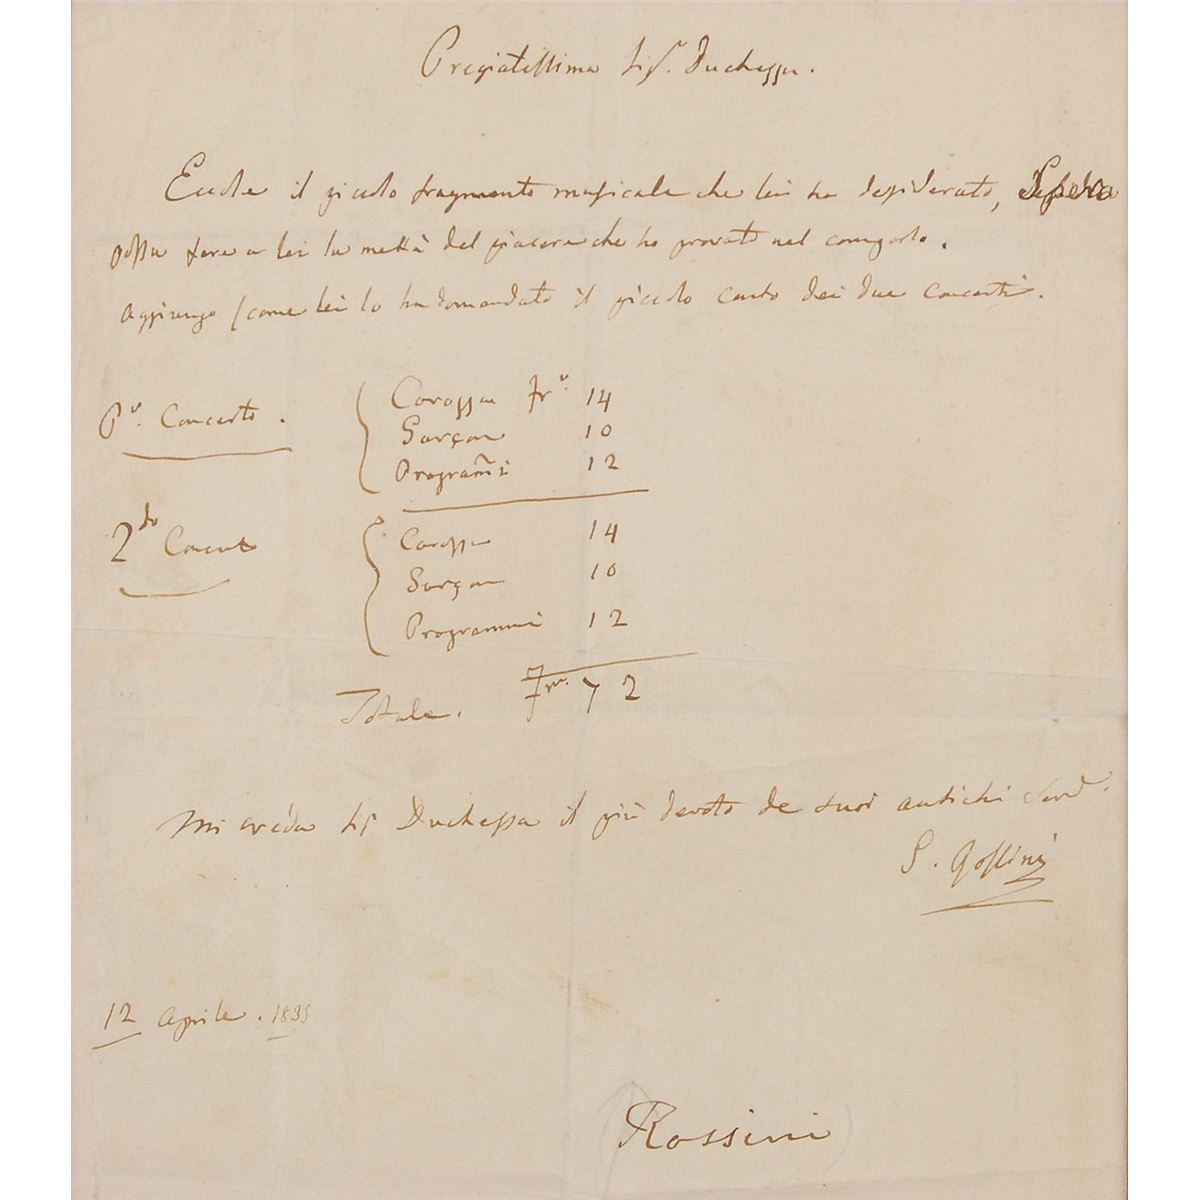 Pregiatissima Sig. Duchessa.
Eccole il piccolo fragmento musicale che lei ha desiderato,
possa fare a lei la mettà del piacere che ho provato nel comporlo.
Aggiungo /come lei lo ha domandato il piccolo conto dei due Concerti.
Pº. Concerto. Carozza Fr. 14
Garçon 10
Programmi 12
2do Concerto Carozza 14
Garçon 10
Programmi 12
Totale. Fr. 72
Mi creda Sig Duchessa il più devoto de suoi antichi Serv.
G. Rossini
12 Aprile. 1835
Rossini